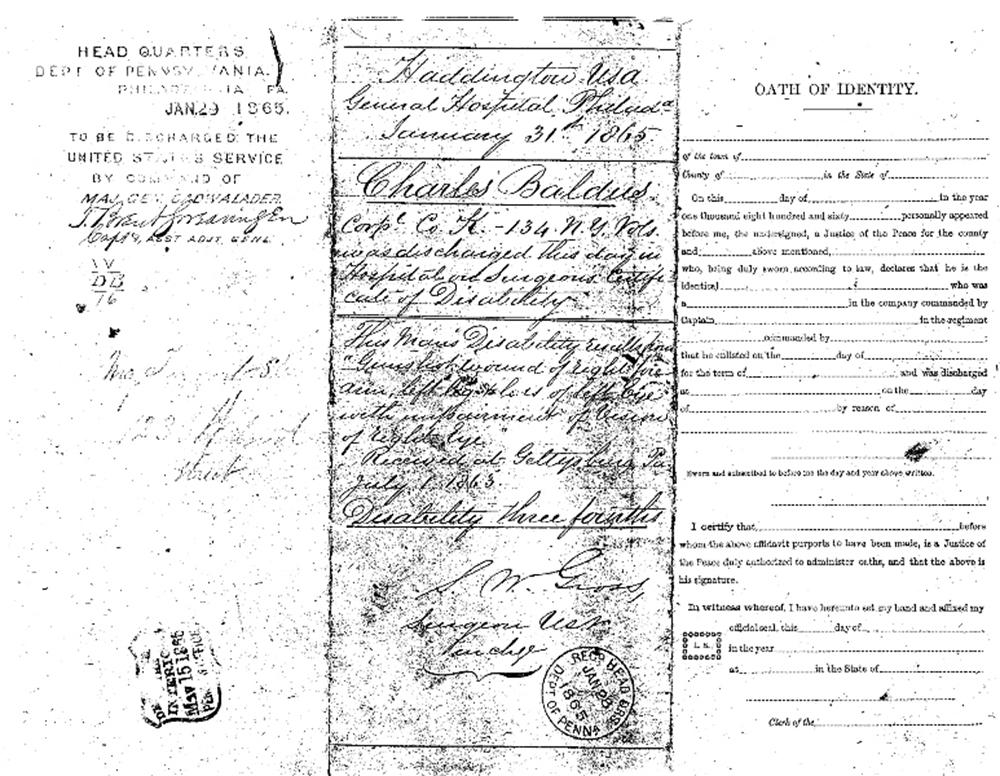 HEAD QUARTERS
DEPT OF PENNSYLVANIA.
PHILADELPHIA PA.
JAN. 29 1865.
TO BE DISCHARGED THE
UNITED STATES SERVICE
BY COMMAND OF
MAJ. GEN. CADWALADER.
Capt & ASST ADJT. GENL.
street
INTERIOR
MAY 15 1886
PEN OFFICE
Haddington U.S.A.
General Hospital Philada
January 31st 1865
Charles Baldus
Corpl. Co. K. - 134 N.Y. Vols.
was discharged this day in
Hospital on Surgeons Certifi-
cate of Disability
This Mans Disability results from
"Gunshot wound of right fore
arm, left leg & loss of left Eye
with impairment of Vision
of right Eye"
Received at Gettysburg Pa
July 1 1863.
Disability three fourths
S. W. Gross,
Surgeon U.S.V.
in chge
REC'D HEAD QURS
JAN 28 1865
DEPT OF PENNA
OATH OF IDENTITY.
of the town of
County of in the State of
On this day of in the year
one thousand eight hundred and sixty personally appeared
before me, the undersigned, a Justice of the Peace for the county
and above mentioned,
who, being duly sworn according to law, declares that he is the
identical who was
a in the company commanded by
Captain in the regiment
commanded by
that he enlisted on the day of
for the term of and was discharged
at on the day
of by reason of
Sworn and subscribed to before me the day and year above written.
I certify that before
whom the above affidavit purports to have been made, is a Justice of
the Peace duly authorized to administer oaths, and that the above is
his signature.
In witness whereof, I have hereunto set my hand and affixed my
official seal, this day of
L. S. in the year
at in the State of
Clerk of the